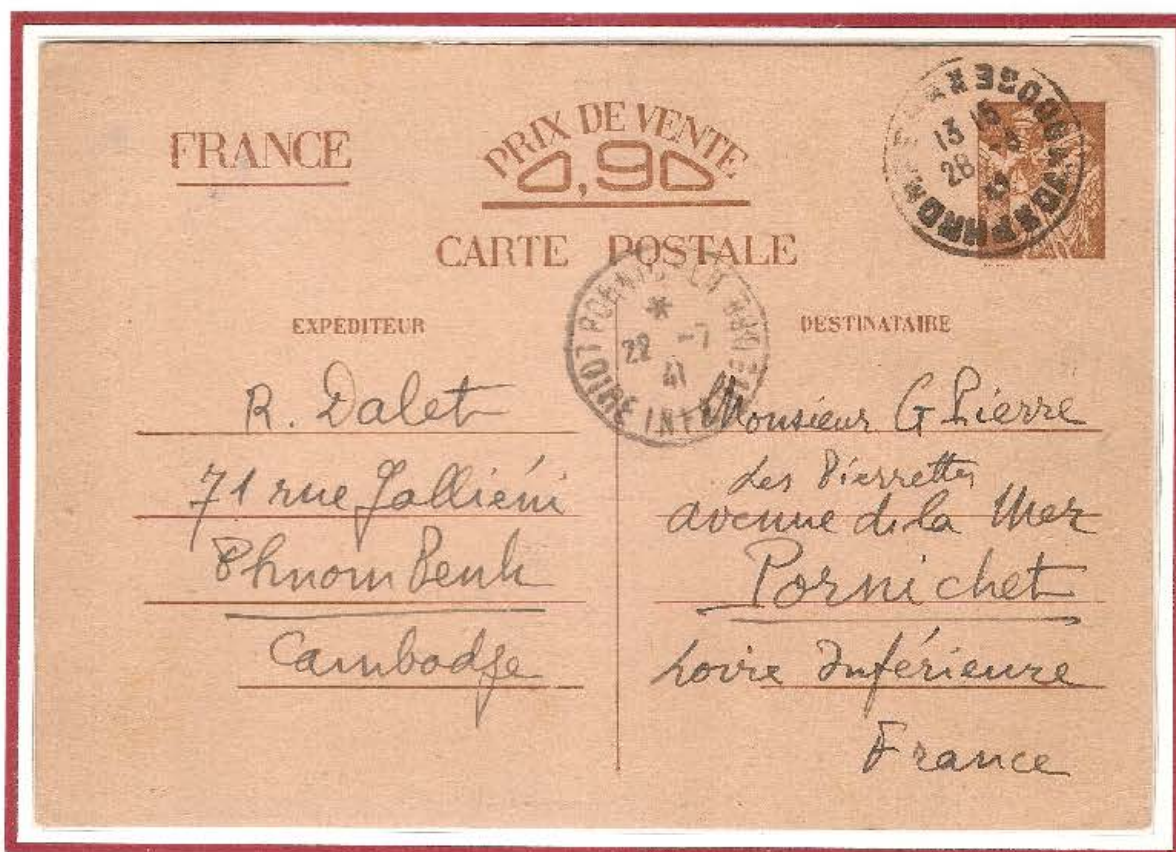 FRANCE
PRIX DE VENTE
0,90
CARTE POSTALE
CAMBODGE
13 15
28
PORNICHET
LOIRE INFRE
*
22 -7
41
EXPÉDITEUR
R. Dalet
71 rue Galliéni
Phnom Penh
Cambodge
DESTINATAIRE
Monsieur G Pierre
Les Pierrettes
avenue de la Mer
Pornichet
Loire Inférieure
France